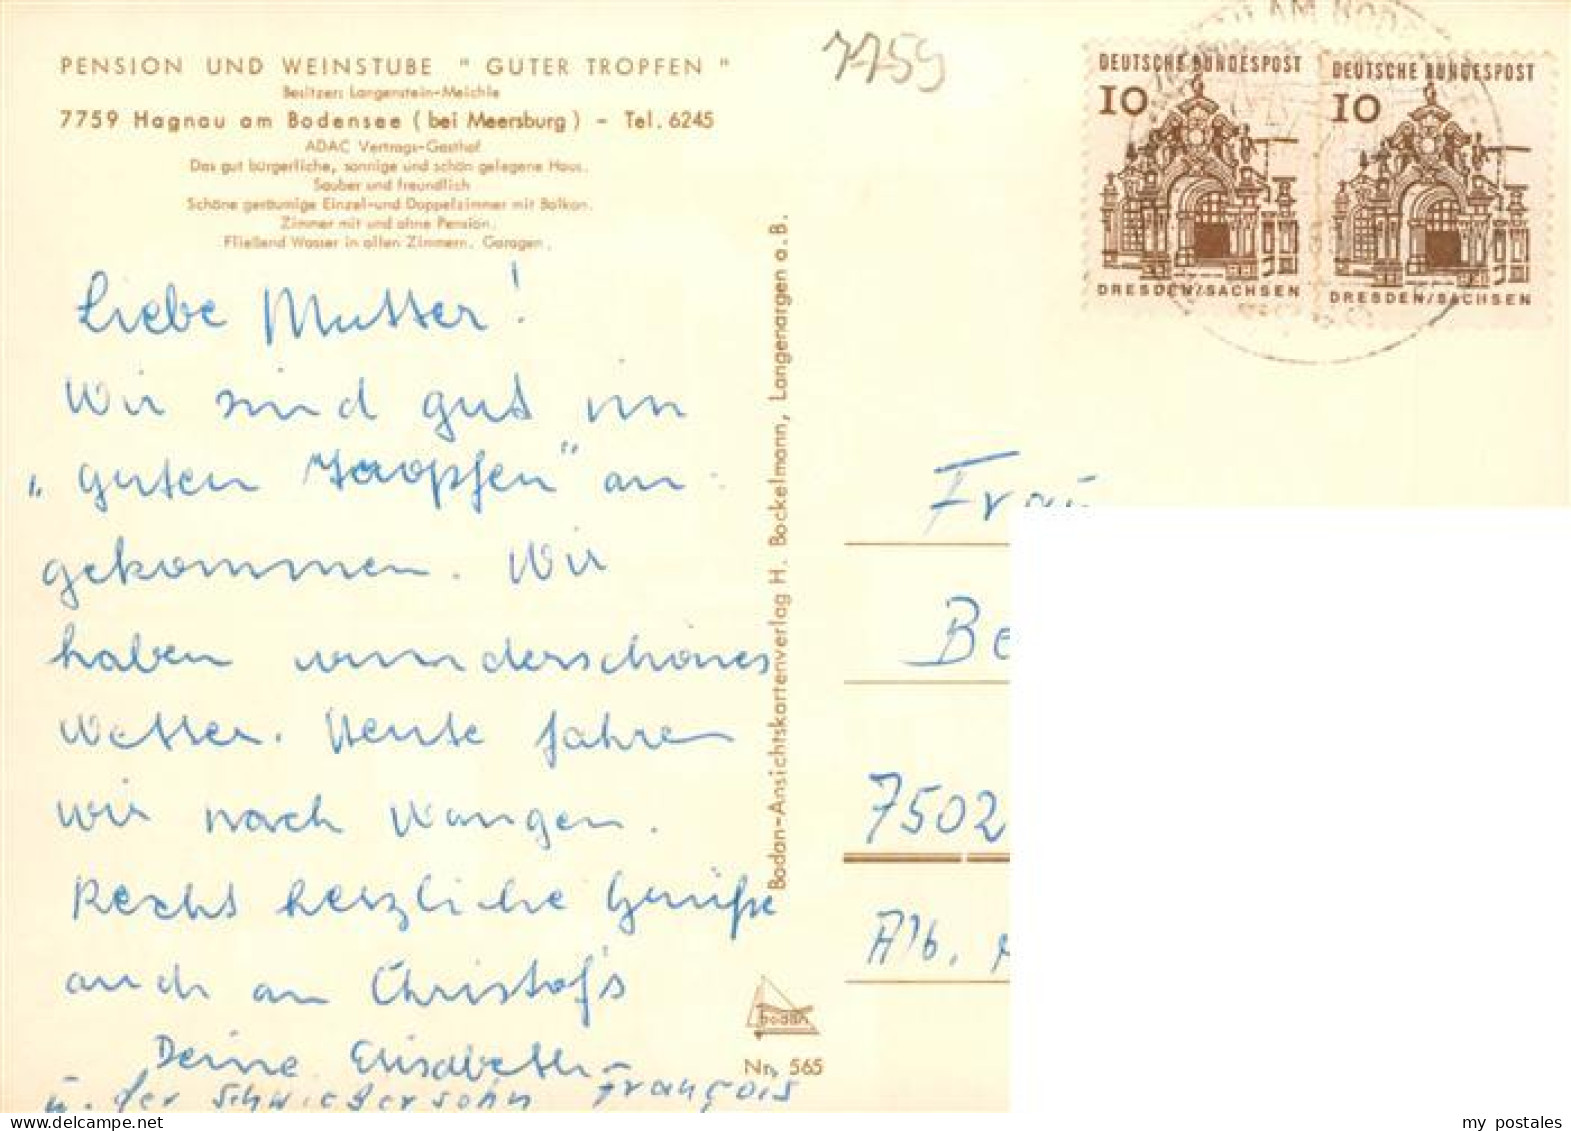 PENSION UND WEINSTUBE " GUTER TROPFEN "
Besitzer: Langenstein-Meichle
7759 Hagnau am Bodensee ( bei Meersburg ) - Tel. 6245
ADAC Vertrags-Gasthof
Das gut bürgerliche, sonnige und schön gelegene Haus.
Sauber und freundlich
Schöne geräumige Einzel-und Doppelzimmer mit Balkon.
Zimmer mit und ohne Pension.
Fließend Wasser in allen Zimmern. Garagen.
Liebe Mutter!
Wir sind gut im
„guten Tropfen" an-
gekommen. Wir
haben wunderschönes
Wetter. Heute fahren
wir nach Wangen.
Recht herzliche Grüße
auch an Christof's
Deine Elisabeth
u. der Schwiegersohn François
Bodan-Ansichtskartenverlag H. Bockelmann, Langenargen a. B.
bodan
Nr. 565
7759
DEUTSCHE BUNDESPOST
10
DRESDEN/SACHSEN
DEUTSCHE BUNDESPOST
10
DRESDEN/SACHSEN
AM BOD
Frau
Be
7502
Alb.
my postales